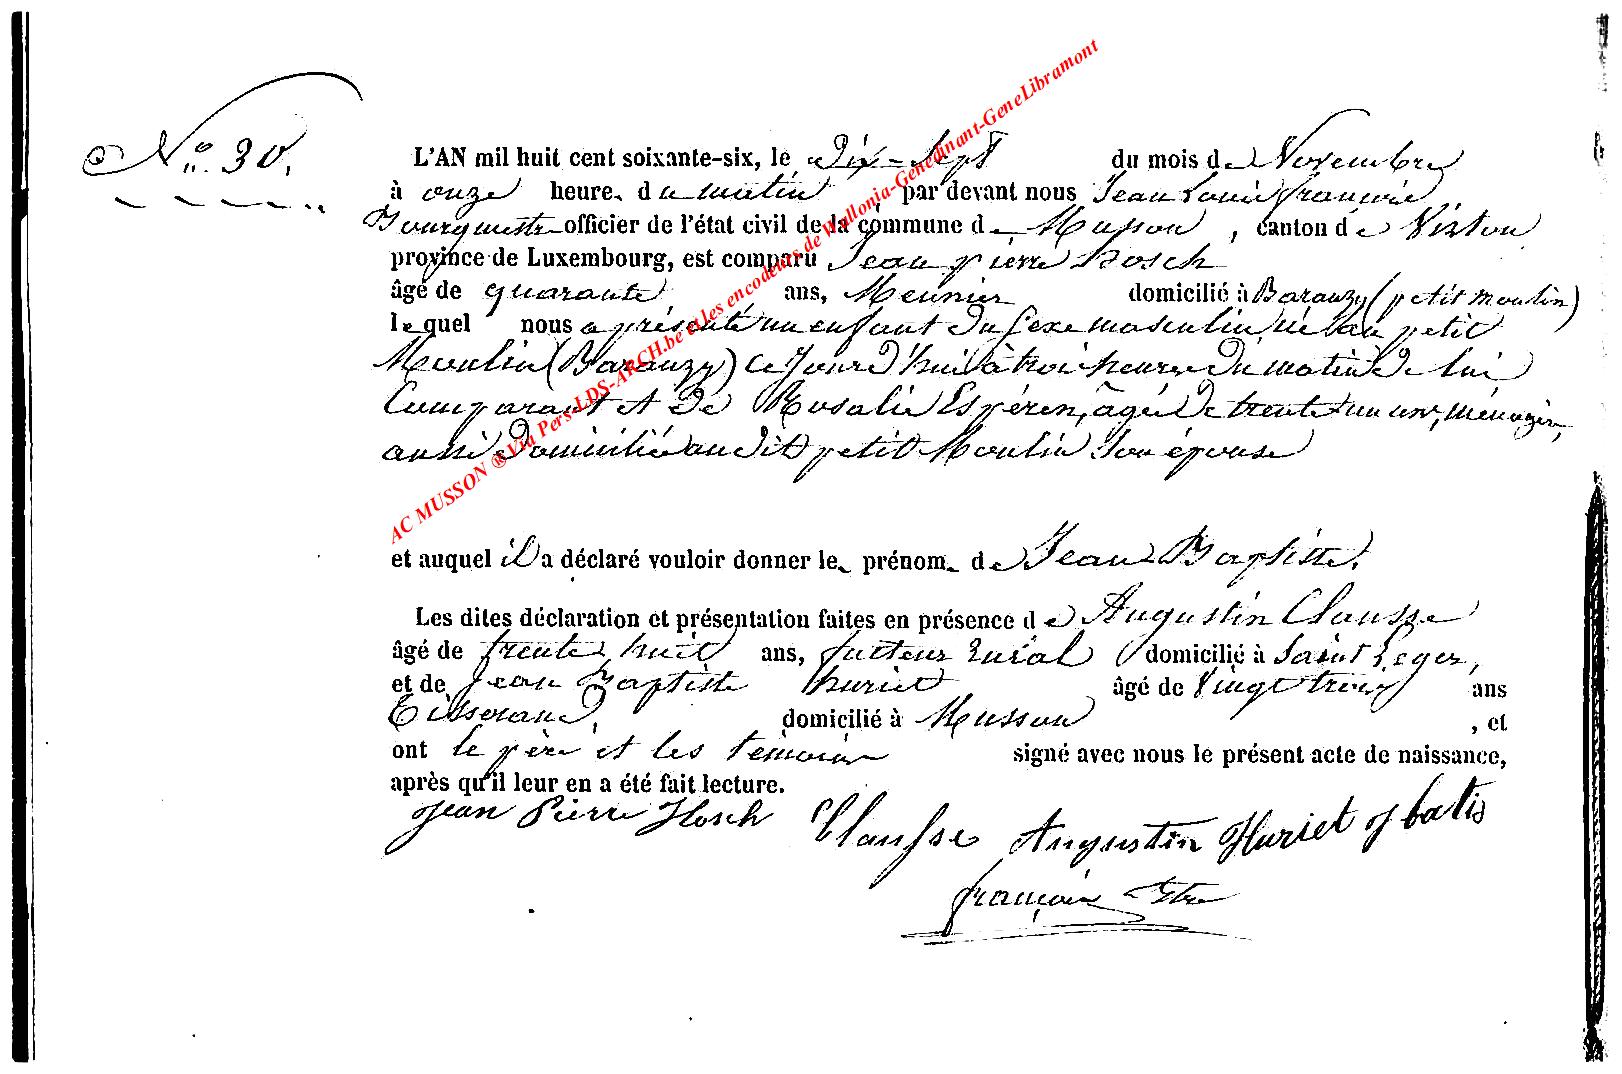 N° 30.
L'AN mil huit cent soixante-six, le dix-sept du mois de Novembre
à onze heure. du matin, par devant nous Jean Louis françois
Bourgmestre officier de l'état civil de la commune de Musson, canton de Virton
province de Luxembourg, est comparu Jean pierre Hosch
âgé de quarante ans, Meunier domicilié à Baranzy (petit moulin)
lequel nous a présenté un enfant du sexe masculin né au petit
Moulin (Baranzy) ce jourd'hui à trois heures du matin de lui
Comparant et de Rosalie Espéren, âgée de trente un ans, ménagère,
aussi domiciliée au dit petit Moulin son épouse
et auquel il a déclaré vouloir donner le prénom de Jean Baptiste.
Les dites déclaration et présentation faites en présence de Augustin Clausse
âgé de trente huit ans, facteur rural domicilié à Saint Leger,
et de Jean Baptiste huriet âgé de Vingt trois ans
Tisserand, domicilié à Musson, et
ont le père et les témoins signé avec nous le présent acte de naissance,
après qu'il leur en a été fait lecture.
Jean Pierre Hosch Clausse Augustin Huriet J batis
françois
AC MUSSON ® Via Pers-LDS-ARCH.be et les encodeurs de Wallonia-Genedinant-GeneLibramont